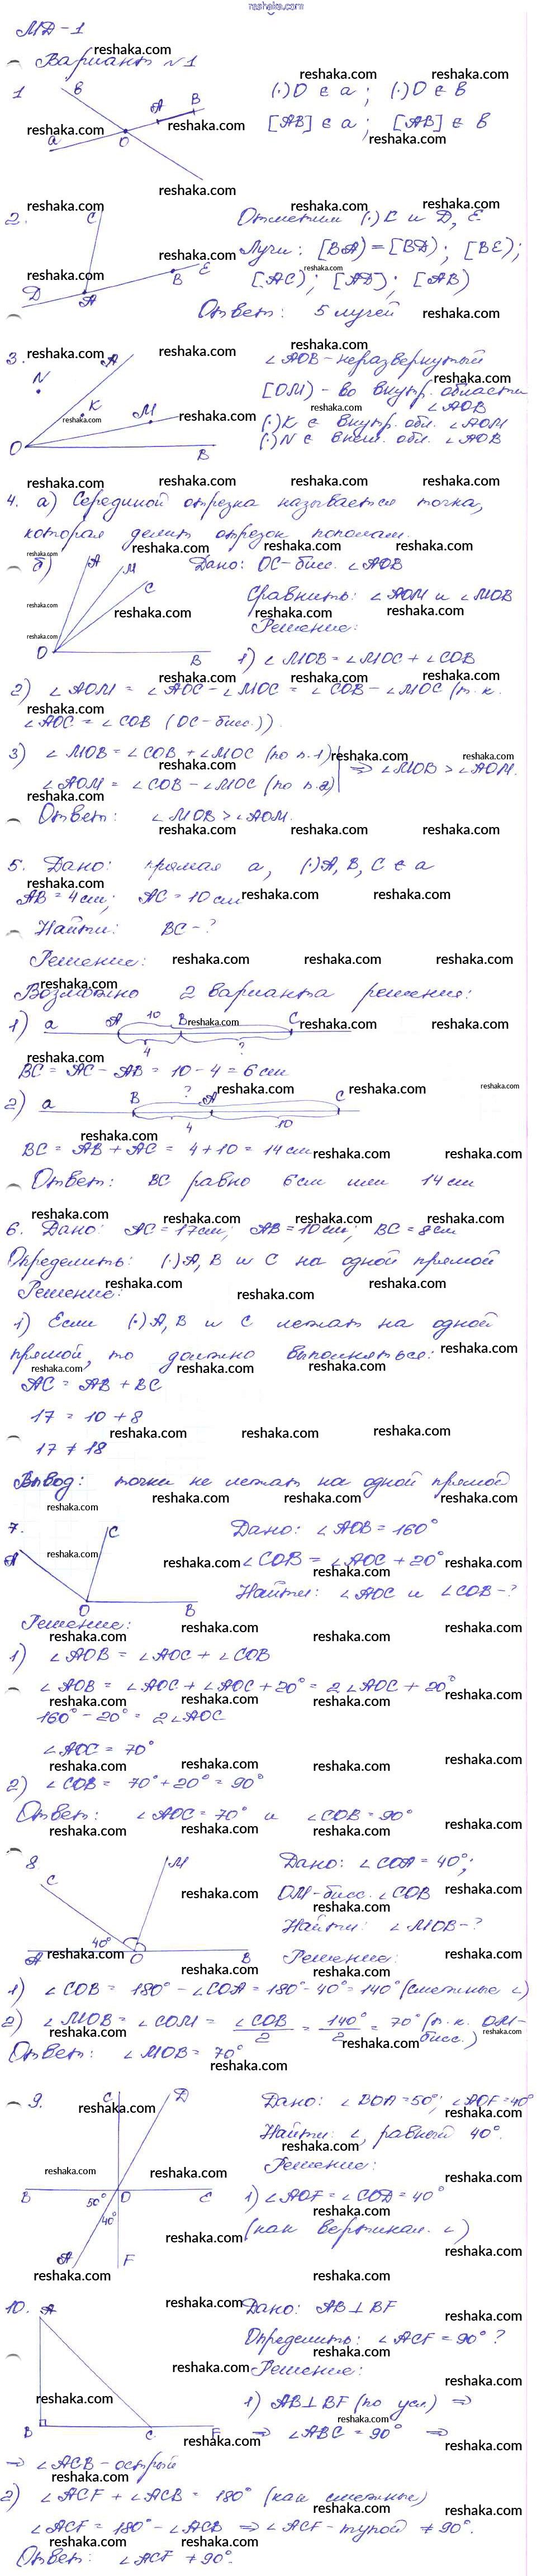 МД-1
Вариант №1
1 в А В а О
(·)D ∈ a; (·)D ∈ B
[AB] ∈ a; [AB] ∈ B
2. C D A B E
Отметим (·) C и D, E
Лучи: [BA) = [BD); [BE);
[AC); [AD); [AB)
Ответ: 5 лучей
3. N A K M O B
∠AOB - неразвернутый
[OM) - во внутр. области
∠AOB
(·)K ∈ внутр. обл. ∠AOM
(·)N ∈ внеш. обл. ∠AOB
4. а) Серединой отрезка называется точка,
которая делит отрезок пополам.
б) A M C O B
Дано: OC - бисс. ∠AOB
Сравнить: ∠AOM и ∠MOB
Решение:
1) ∠MOB = ∠MOC + ∠COB
2) ∠AOM = ∠AOC - ∠MOC = ∠COB - ∠MOC (т.к.
∠AOC = ∠COB (OC - бисс.)).
3) ∠MOB = ∠COB + ∠MOC (по п.1)
∠AOM = ∠COB - ∠MOC (по п.2) ⇒ ∠MOB > ∠AOM.
Ответ: ∠MOB > ∠AOM.
5. Дано: прямая a, (·)A, B, C ∈ a
AB = 4 см; AC = 10 см
Найти: BC - ?
Решение:
Возможно 2 варианта решения:
1) a A 10 B C 4 ?
BC = AC - AB = 10 - 4 = 6 см
2) a B ? A C 4 10
BC = AB + AC = 4 + 10 = 14 см
Ответ: BC равно 6 см или 14 см
6. Дано: AC = 17 см; AB = 10 см; BC = 8 см
Определить: (·)A, B и C на одной прямой
Решение:
1) Если (·)A, B и C лежат на одной
прямой, то должно выполняться:
AC = AB + BC
17 = 10 + 8
17 ≠ 18
Вывод: точки не лежат на одной прямой
7. A C O B
Дано: ∠AOB = 160°
∠COB = ∠AOC + 20°
Найти: ∠AOC и ∠COB - ?
Решение:
1) ∠AOB = ∠AOC + ∠COB
∠AOB = ∠AOC + ∠AOC + 20° = 2∠AOC + 20°
160° - 20° = 2∠AOC
∠AOC = 70°
2) ∠COB = 70° + 20° = 90°
Ответ: ∠AOC = 70° и ∠COB = 90°
8 C M 40° A O B
Дано: ∠COA = 40°;
OM - бисс. ∠COB
Найти: ∠MOB - ?
Решение:
1) ∠COB = 180° - ∠COA = 180° - 40° = 140° (смежные ∠)
2) ∠MOB = ∠COM = ∠COB/2 = 140°/2 = 70° (т.к. OM - бисс.)
Ответ: ∠MOB = 70°
9. C D B 50° O C 40° A F
Дано: ∠BOA = 50°; ∠AOF = 40°
Найти: ∠, равный 40°.
Решение:
1) ∠AOF = ∠COD = 40°
(как вертикал. ∠)
10. A B C F
Дано: AB ⊥ BF
Определить: ∠ACF = 90° ?
Решение:
1) AB ⊥ BF (по усл) ⇒
⇒ ∠ABC = 90° ⇒
⇒ ∠ACB - острый
2) ∠ACF + ∠ACB = 180° (как смежные)
∠ACF = 180° - ∠ACB ⇒ ∠ACF - тупой ≠ 90°.
Ответ: ∠ACF ≠ 90°.
reshaka.com